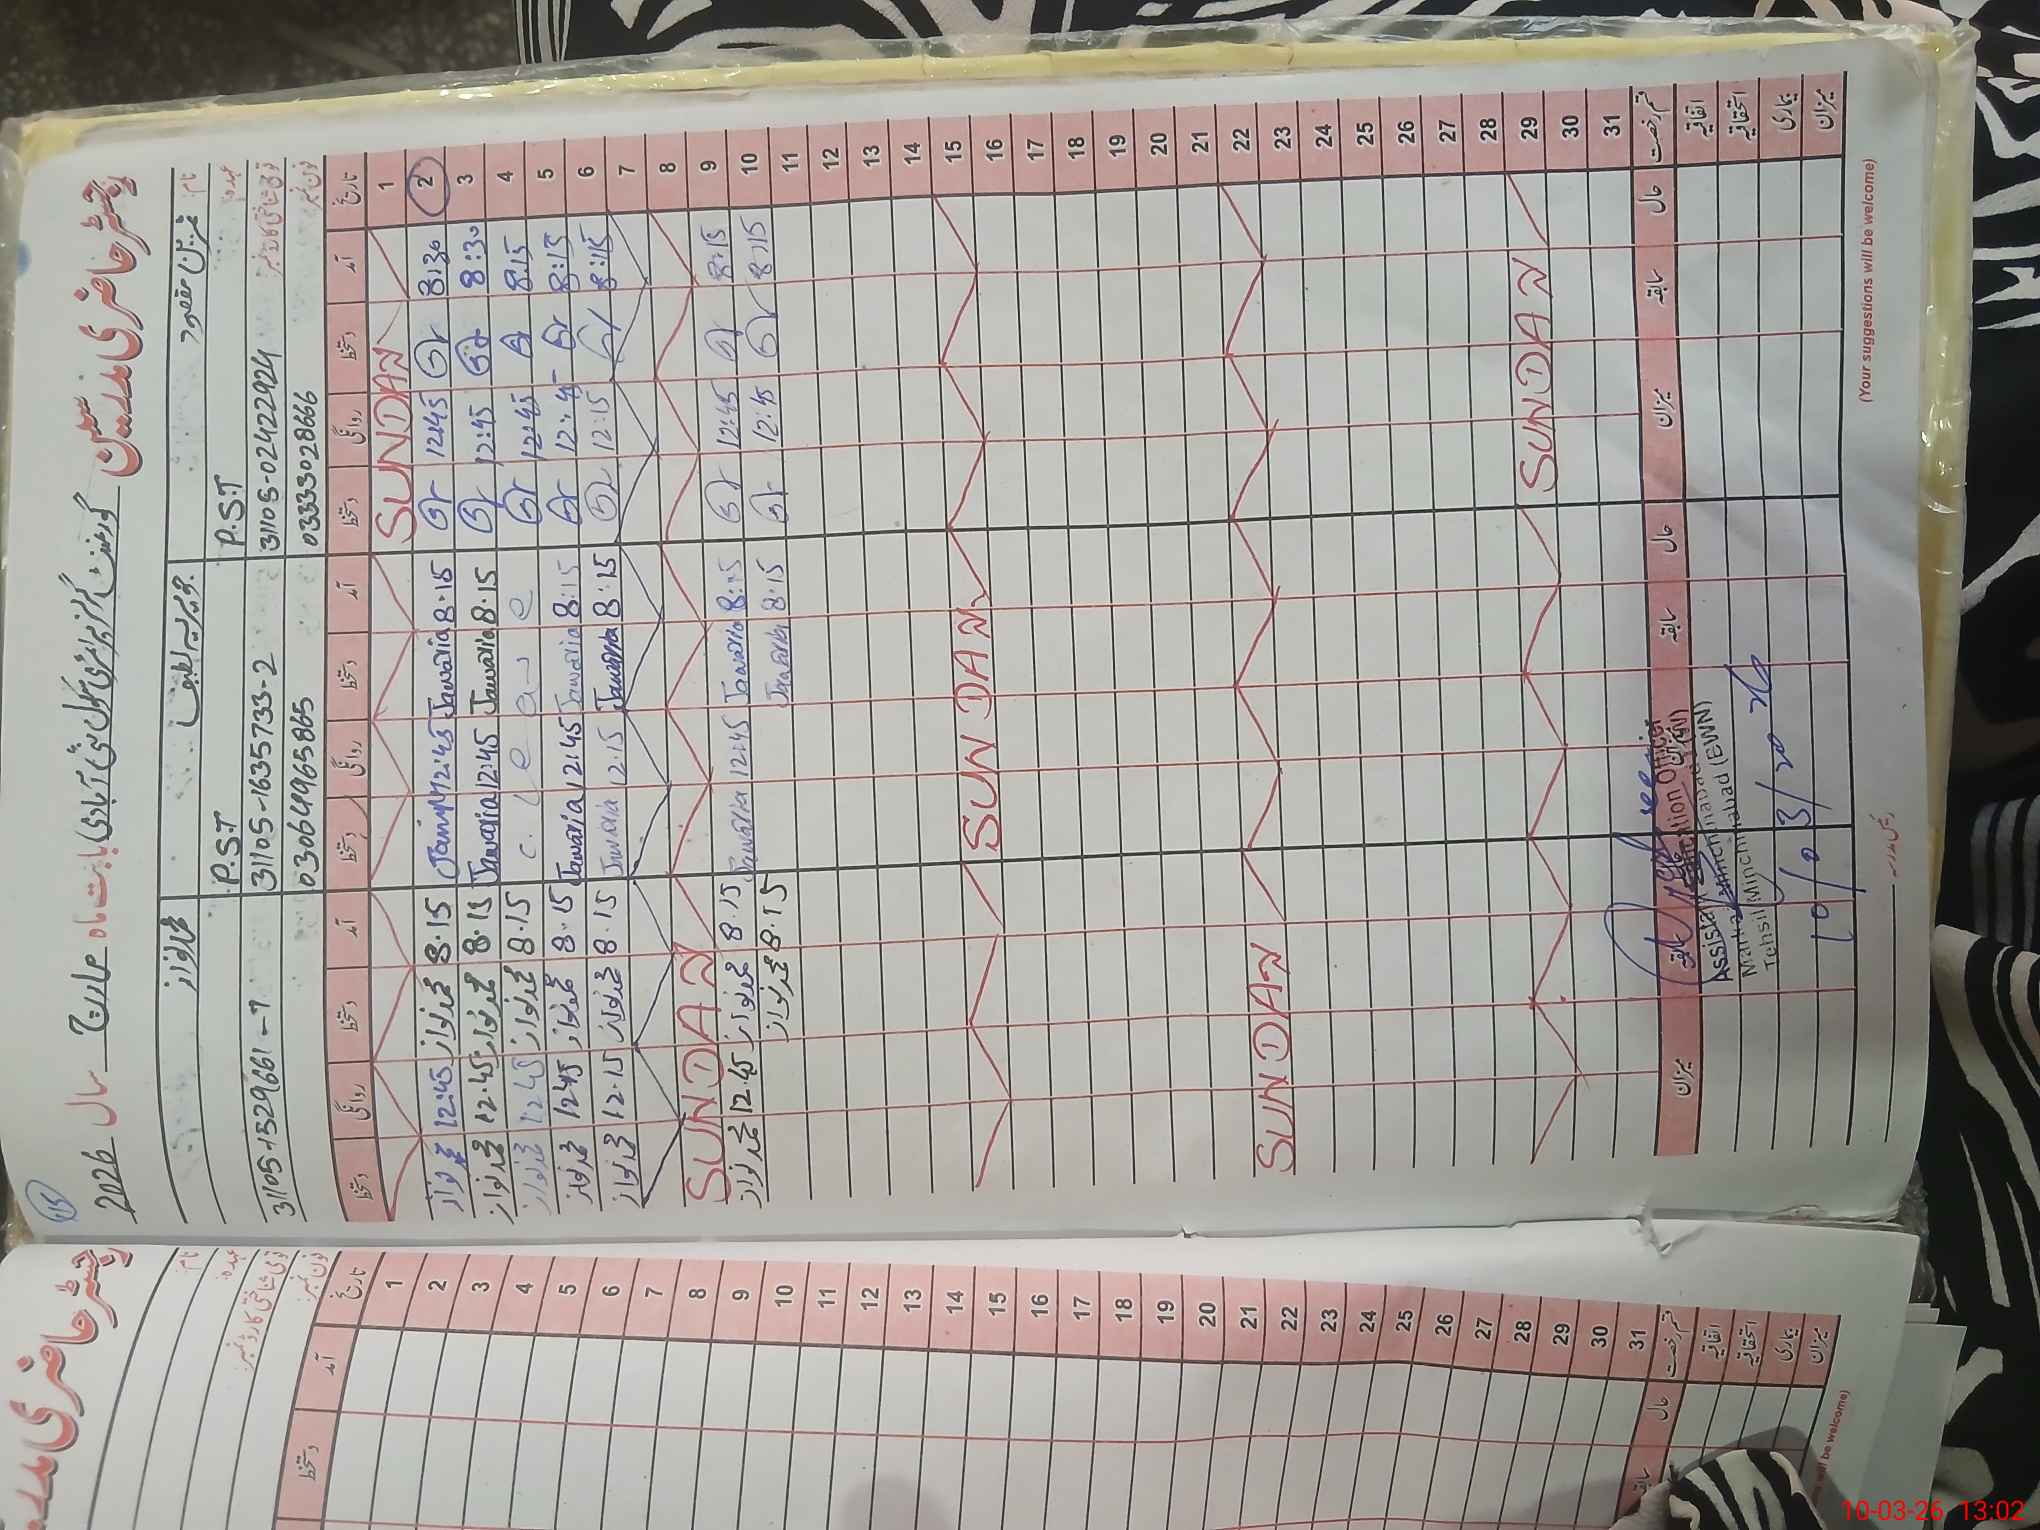 رجسٹر حاضری مدرسین گورنمنٹ گرلز پرائمری سکول نئی آبادی بابت ماہ مارچ سال 2026
نام: عنبرین مقصود جویریہ لطیف محمد نواز
عہدہ P.S.T P.S.T
قومی شناختی کارڈ نمبر 31105-02422924 31105-1635733-2 31105-1529661-7
فون نمبر 03333028666 03064965865
تاریخ آمد دستخط روانگی دستخط آمد دستخط روانگی دستخط آمد دستخط روانگی دستخط
1 SUNDAY
2 8:30 12:45 8:15 Jawaria 12:45 8.15 محمد نواز 12:45 محمد نواز
3 8:30 12:45 8.15 Jawaria 12:45 Jawaria 8.15 محمد نواز 12.45 محمد نواز
4 8:15 12:45 e a v e l e . c 8.15 محمد نواز 12.45 محمد نواز
5 8:15 12:45 8:15 Jawaria 12:45 Jawaria 8.15 محمد نواز 12.45 محمد نواز
6 8:15 12:15 8:15 Jawaria 12:15 Jawaria 8.15 محمد نواز 12.15 محمد نواز
7
8 SUNDAY
9 8:15 12:45 8:15 Jawaria 12:45 Jawaria 8.15 محمد نواز 12.45 محمد نواز
10 8:15 12:45 8.15 Jawaria 8.15 محمد نواز
11
12
13
14
15 SUNDAY
16
17
18
19
20
21
22 SUNDAY
23
24
25
26
27
28
29 SUNDAY
30
31
قسم رخصت حال سابقہ میزان حال سابقہ میزان حال سابقہ میزان
اتفاقیہ
استحقاقیہ
بیماری
میزان
Assistant Education Officer
Markaz Minchinabad (EWN)
Tehsil Minchinabad (EWN)
10/03/2026
رئیس مدرسہ
(Your suggestions will be welcome)
رجسٹر حاضری مدرسین
نام:
عہدہ:
قومی شناختی کارڈ نمبر:
فون نمبر:
تاریخ آمد دستخط
1
2
3
4
5
6
7
8
9
10
11
12
13
14
15
16
17
18
19
20
21
22
23
24
25
26
27
28
29
30
31
قسم رخصت حال سابقہ
اتفاقیہ
استحقاقیہ
بیماری
میزان
will be welcome)
10-03-26 13:02